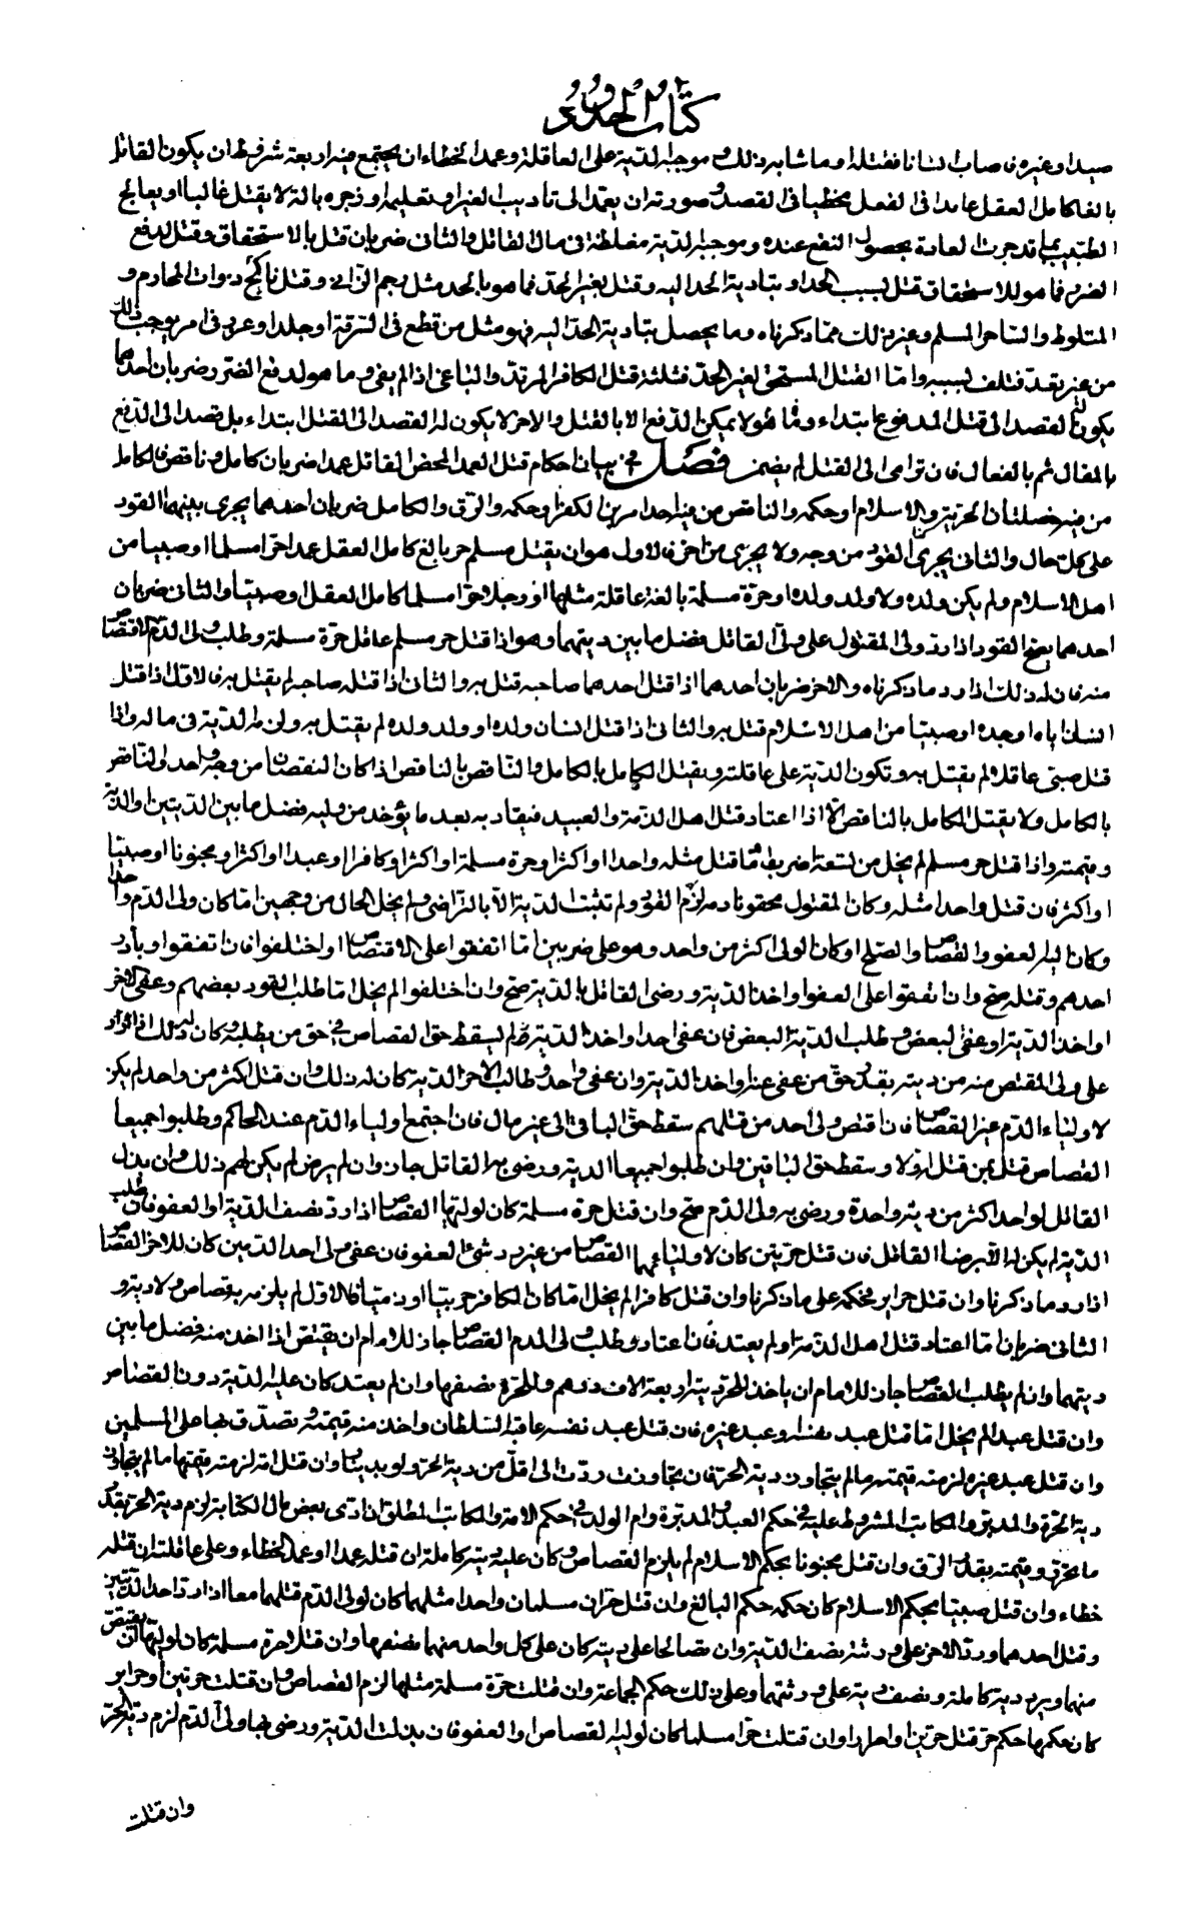 كتاب الحدود
صيدا وغيره فاصاب انسانا فقتله او ما شابه ذلك وموجبه الدية على العاقلة وعمد الخطاء ان يجتمع فيه اربعة شروط ان يكون القاتل
بالغا كامل العقل عامدا فى الفعل مخطيا فى القصد وصورته ان يعمد الى تاديب الغير او تعليمه او زجره بالة لا يقتل غالبا او يعالج
الطبيب بما قد جرت العادة بحصول النفع عنده وموجبه الدية مغلظة فى مال القاتل والثانى ضربان قتل بالاستحقاق وقتل لدفع
الضرر فما هو للاستحقاق قتل بسبب الحد او بتادية الحد اليه وقتل بغير الحد فما هو بالحد مثل رجم الزانى وقتل ناكح ذوات المحارم و
المتلوط والساحر المسلم وغير ذلك مما ذكرناه وما يحصل بتادية الحد اليه فهو مثل من قطع فى السرقة او جلد او عزر فى امر يوجب ذلك
من غير تعد فتلف بسببه واما القتل المستحق لغير الحد فثلثة قتل الكافر المرتد والباغى اذا لم يفئ وما هو لدفع الضرر ضربان احدهما
يكون القصد الى قتل المدفوع ابتداء وما هو لا يمكن الدفع الا بالقتل والاخر لا يكون له القصد الى القتل ابتداء بل يقصد الى الدفع
بالمقال ثم بالفعال فان ترامى الى القتل لم يضمن فصل فى بيان احكام قتل العمد المحض القاتل عمدا ضربان كامل وناقص فالكامل
من فيه خصلتان الحرية والاسلام او حكمه والناقص من فيه احد امرين الكفر او حكمه والرق والكامل ضربان احدهما يجرى بينهما القود
على كل حال والثانى يجرى القود من وجه ولا يجرى من اخر فالاول هو ان يقتل مسلم حر بالغ كامل العقل عمدا حرا مسلما او صبيا من
اهل الاسلام ولم يكن ولده ولا ولد ولده او حرة مسلمة بالغة عاقلة مثلها او رجلا حرا مسلما كامل العقل او صبيا والثانى ضربان
احدهما يصح القود اذا رد ولى المقتول على ولى القاتل فضل ما بين ديتهما وهو اذا قتل حر مسلم عاقل حرة مسلمة وطلب ولى الدم الاقتصاص
منه فان له ذلك اذا رد ما ذكرناه والاخر ضربان احدهما اذا قتل احدهما صاحبه قتل به والثانى اذا قتله صاحبه لم يقتل به فالاول اذا قتل
انسان اباه او جده او صبيا من اهل الاسلام قتل به والثانى اذا قتل انسان ولده او ولد ولده لم يقتل به ولزمه الدية فى ماله واذا
قتل صبى عاقلا لم يقتل به وتكون الدية على عاقلته ويقتل الكامل بالكامل والناقص بالناقص اذا كان النقصان من وجه واحد والناقص
بالكامل ولا يقتل الكامل بالناقص الا اذا اعتاد قتل اهل الذمة والعبيد فيقاد به بعد ما يؤخذ من وليه فضل ما بين الديتين او الدية
وقيمته واذا قتل حر مسلم لم يخل من تسعة اضرب اما قتل مثله واحدا او اكثر او حرة مسلمة او اكثر او كافرا او عبدا او اكثر او مجنونا او صبيا
او اكثر فان قتل واحدا مثله وكان المقتول محقونا دمه لزم القود ولم تثبت الدية الا بالتراضى ولم يخل الحال من وجهين اما كان ولى الدم واحدا
وكان اليه العفو والقصاص والصلح او كان الولى اكثر من واحد وهو على ضربين اما اتفقوا على الاقتصاص او اختلفوا فان اتفقوا وبادر
احدهم وقتله صح وان اتفقوا على العفو او اخذ الدية ورضى القاتل بالدية صح وان اختلفوا لم يخل اما طلب القود بعضهم وعفى الاخر
او اخذ الدية او عفى البعض وطلب الدية البعض فان عفى احد او اخذ الدية لم يسقط حق القصاص فى حق من يطلبه وكان له ذلك اذا رد
على ولى المقتص منه من ديته بقدر حق من عفى عنه او اخذ الدية وان عفى واحد وطالب الاخر الدية كان له ذلك وان قتل اكثر من واحد لم يكن
لاولياء الدم غير القصاص فان اقتص ولى احد من قتلهم سقط حق الباقى الى غير مال فان اجتمع اولياء الدم عند الحاكم وطلبوا جميعا
القصاص قتل بمن قتل اولا وسقط حق الباقين وان طلبوا جميعا الدية ورضى بها القاتل جاز وان لم يرض لم يكن لهم ذلك وان بذل
القاتل لواحد اكثر من دية واحدة ورضى به ولى الدم صح وان قتل حرة مسلمة كان لوليها القصاص اذا رد نصف الدية او العفو فان طلب
الدية لم يكن له الا برضا القاتل فان قتل حرتين كان لاوليائهما القصاص من غير رد شئ او العفو فان عفى ولى احد الدمين كان للاخر القصاص
اذا رد ما ذكرنا وان قتل حراير فحكمه على ما ذكرنا وان قتل كافرا لم يخل اما كان الكافر حربيا او ذميا فالاول لم يلزمه به قصاص ولا دية و
الثانى ضربان اما اعتاد قتل اهل الذمة او لم يعتد فان اعتاد وطلب ولى الدم القصاص جاز للامام ان يقتص اذا اخذ منه فضل ما بين
ديتهما وان لم يطلب القصاص جاز للامام ان ياخذ للحر دية اربعة الاف درهم وللحرة نصفها وان لم يعتد كان عليه الدية دون القصاص
وان قتل عبدا لم يخل اما قتل عبد نفسه او عبد غيره فان قتل عبد نفسه عاقبه السلطان واخذ منه قيمته وتصدق بها على المسلمين
وان قتل عبد غيره لزمته قيمته ما لم يتجاوز دية الحر فان تجاوزت ردت الى اقل من دية الحر ولو بدينار وان قتل امة لزمته قيمتها ما لم يتجاوز
دية الحرة والمدبر والمكاتب المشروط عليه فى حكم العبد والمدبرة وام الولد فى حكم الامة والمكاتب المطلق ان ادى بعض مال الكتابة لزم دية الحر بقدر
ما تحرر وقيمته بقدر الرق وان قتل مجنونا بحكم الاسلام لم يلزم القصاص وكان عليه دية كاملة ان قتله عمدا او عمد الخطاء وعلى عاقلته ان قتله
خطاء وان قتل صبيا بحكم الاسلام كان حكمه حكم البالغ وان قتل حران مسلمان واحدا مثلهما كان لولى الدم قتلهما معا اذا رد احد الديتين
وقتل احدهما ورد الاخر على ورثته نصف الدية وان تصالحا على دية كان على كل واحد منهما نصفها وان قتلا حرة مسلمة كان لوليها ان يقتص
منهما ويرد دية كاملة ونصف دية على ورثتهما وعلى ذلك حكم الجماعة وان قتلت حرة مسلمة مثلها لزم القصاص وان قتلت حرتين او حراير
كان حكمها حكم حر قتل حرين او احرارا وان قتلت حرا مسلما كان لوليه القصاص او العفو فان بذلت الدية ورضى بها ولى الدم لزم دية الحر
وان قتلت